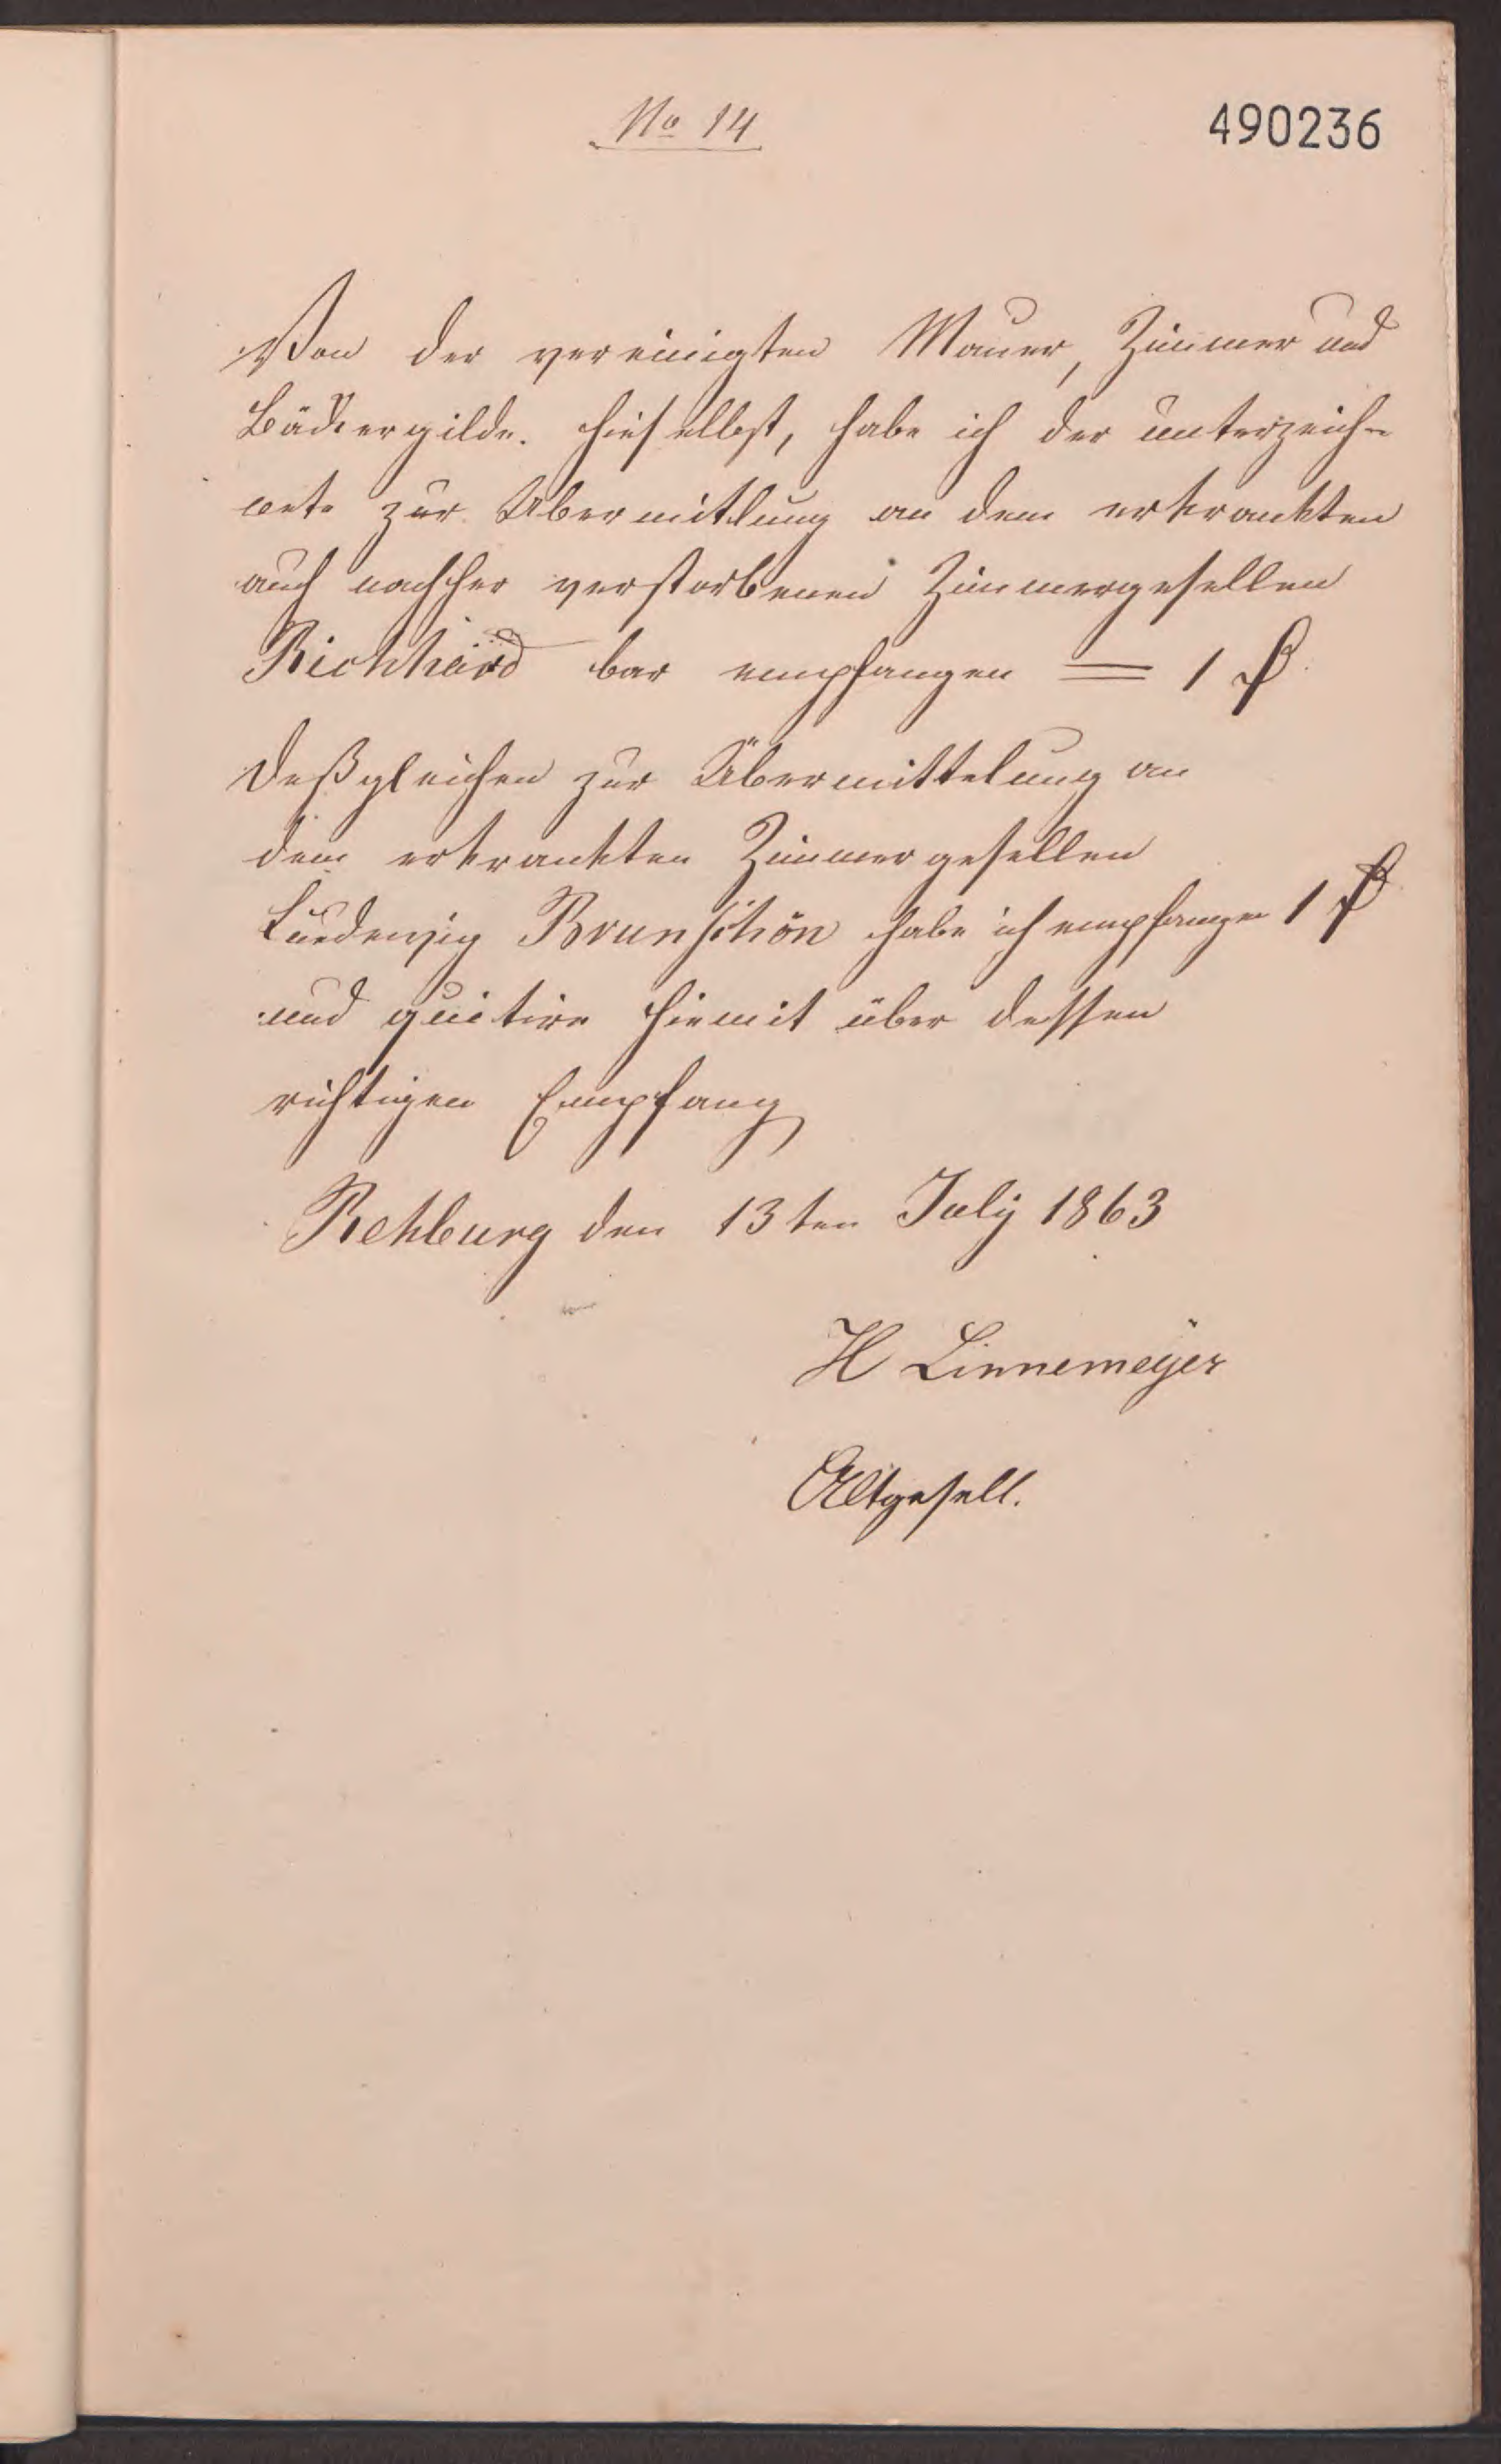 No 14
490236
Von der vereinigten Mauer, Zimmer und
Bäckergilde. hieselbst, habe ich der unterzeich-
nete zur Übermitlung an dem erkrankten
auch nachher verstorbenen Zimmergesellen
bar empfangen = 1 ₰
Deßgleichen zur Übermittelung an
dem erkrankten Zimmergesellen
Luedewig Brunschön habe ich empfangen 1 ₰
und quitire hiemit über dessen
richtigen Empfang
Rehburg den 13ten July 1863
H Linnemeÿer
Altgesell.